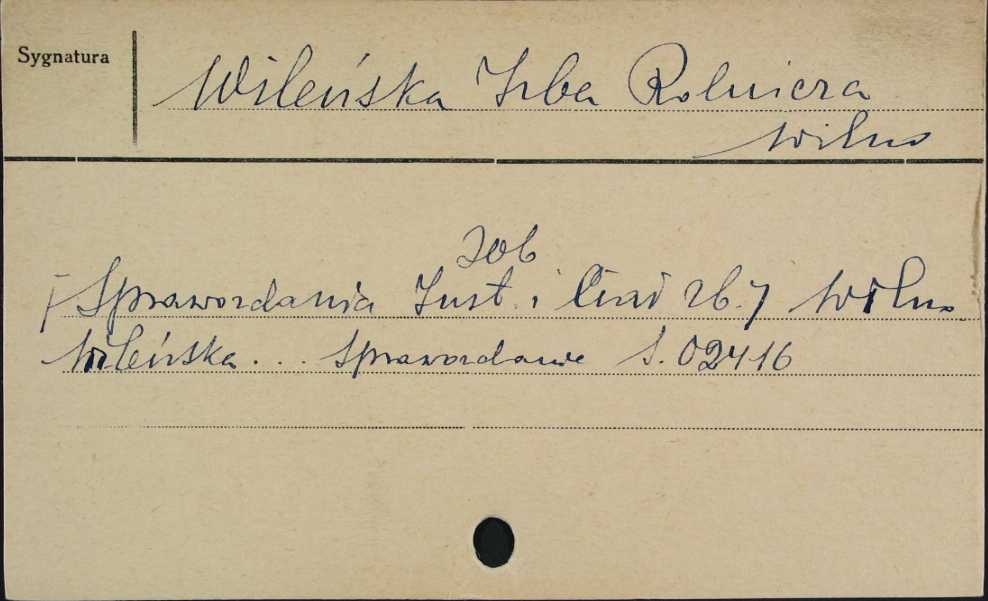 Sygnatura
Wileńska Izba Rolnicza
Wilno
Zob
[Sprawozdania Inst. i Ciał zb.] Wilno
Wileńska... Sprawozdanie S. 02416